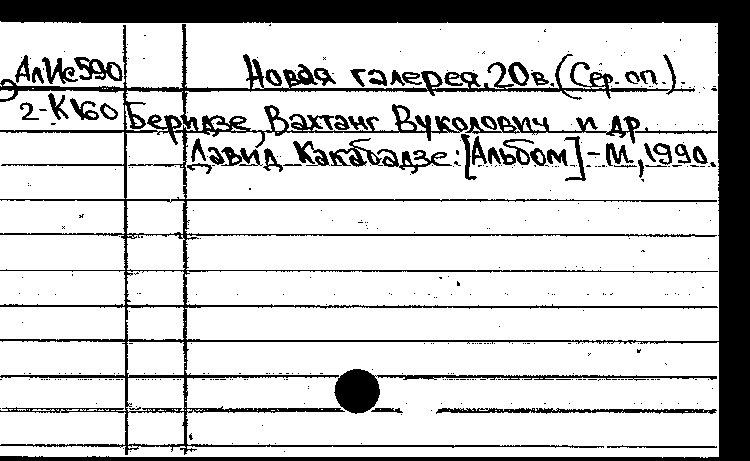 АлИс590 Новая галерея. 20 в. (Сер. оп.).
2-К160 Беридзе, Вахтанг Вуколович и др.
Давид Какабадзе: [Альбом] - М., 1990.